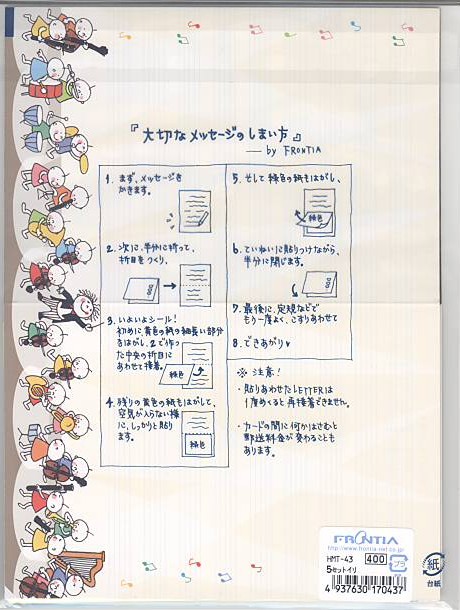 『大切なメッセージのしまい方』
— by FRONTIA
1. まず、メッセージを
かきます。
2. 次に、半分に折って、
折目をつくり、
3. いよいよシール!
初めに、黄色の紙の細長い部分
をはがし、2で作っ
た中央の折目に
あわせて接着。
桃色
4. 残りの黄色の紙もはがして、
空気が入らない様
に、しっかりと貼り
ます。
桃色
5. そして桃色の紙もはがし、
桃色
6. ていねいに貼りつけながら、
半分に閉じます。
7. 最後に、定規などで
もう一度よく、こすりあわせて
8. できあがり♥
※ 注意!
・貼りあわせたLETTERは
1度めくると再接着できません。
・カードの間に何かはさむと
郵送料金が変わることも
あります。
FRONTIA
http://www.frontia-net.co.jp
HMT-43 400
プラ
5セットイリ
4 937630 170437
紙
台紙